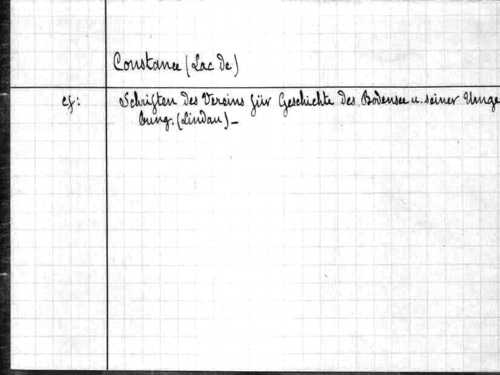 Constance (Lac de)
cf: Schriften des Vereins für Geschichte des Bodensee u. seiner Umge
bung. (Lindau) _